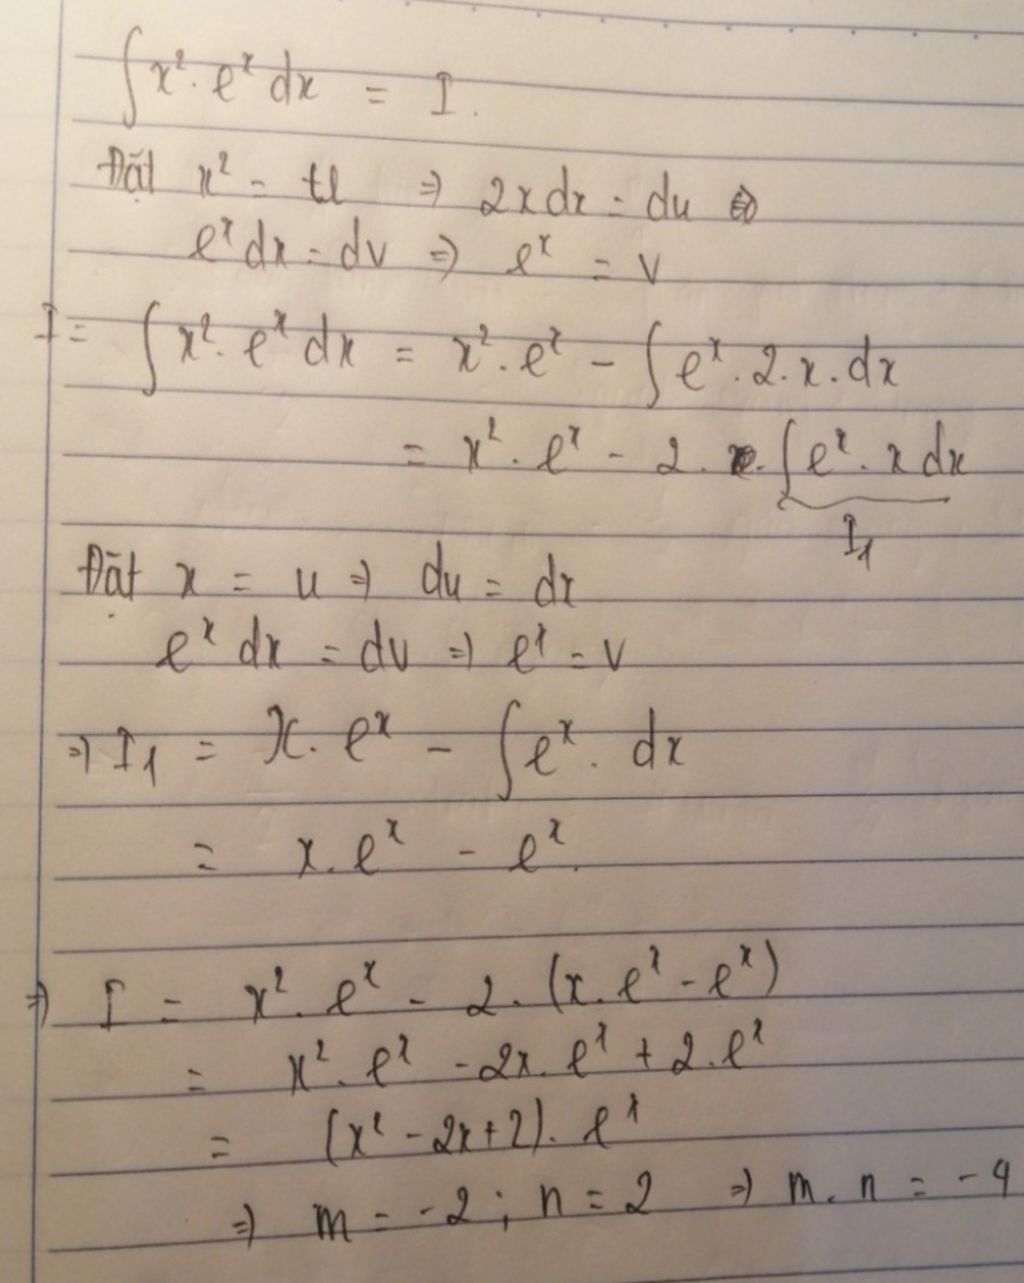 ∫x². eˣ dx = I.
Đặt x² = u ⇒ 2xdx = du
eˣdx = dv ⇒ eˣ = v
I = ∫x². eˣ dx = x². eˣ - ∫eˣ. 2. x. dx
= x². eˣ - 2. ∫eˣ. x dx
I₁
Đặt x = u ⇒ du = dx
eˣ dx = dv ⇒ eˣ = v
⇒ I₁ = x. eˣ - ∫eˣ. dx
= x. eˣ - eˣ.
⇒ I = x². eˣ - 2. (x. eˣ - eˣ)
= x². eˣ - 2x. eˣ + 2. eˣ
= (x² - 2x+2). eˣ
⇒ m = -2 ; n = 2 ⇒ m. n = -4